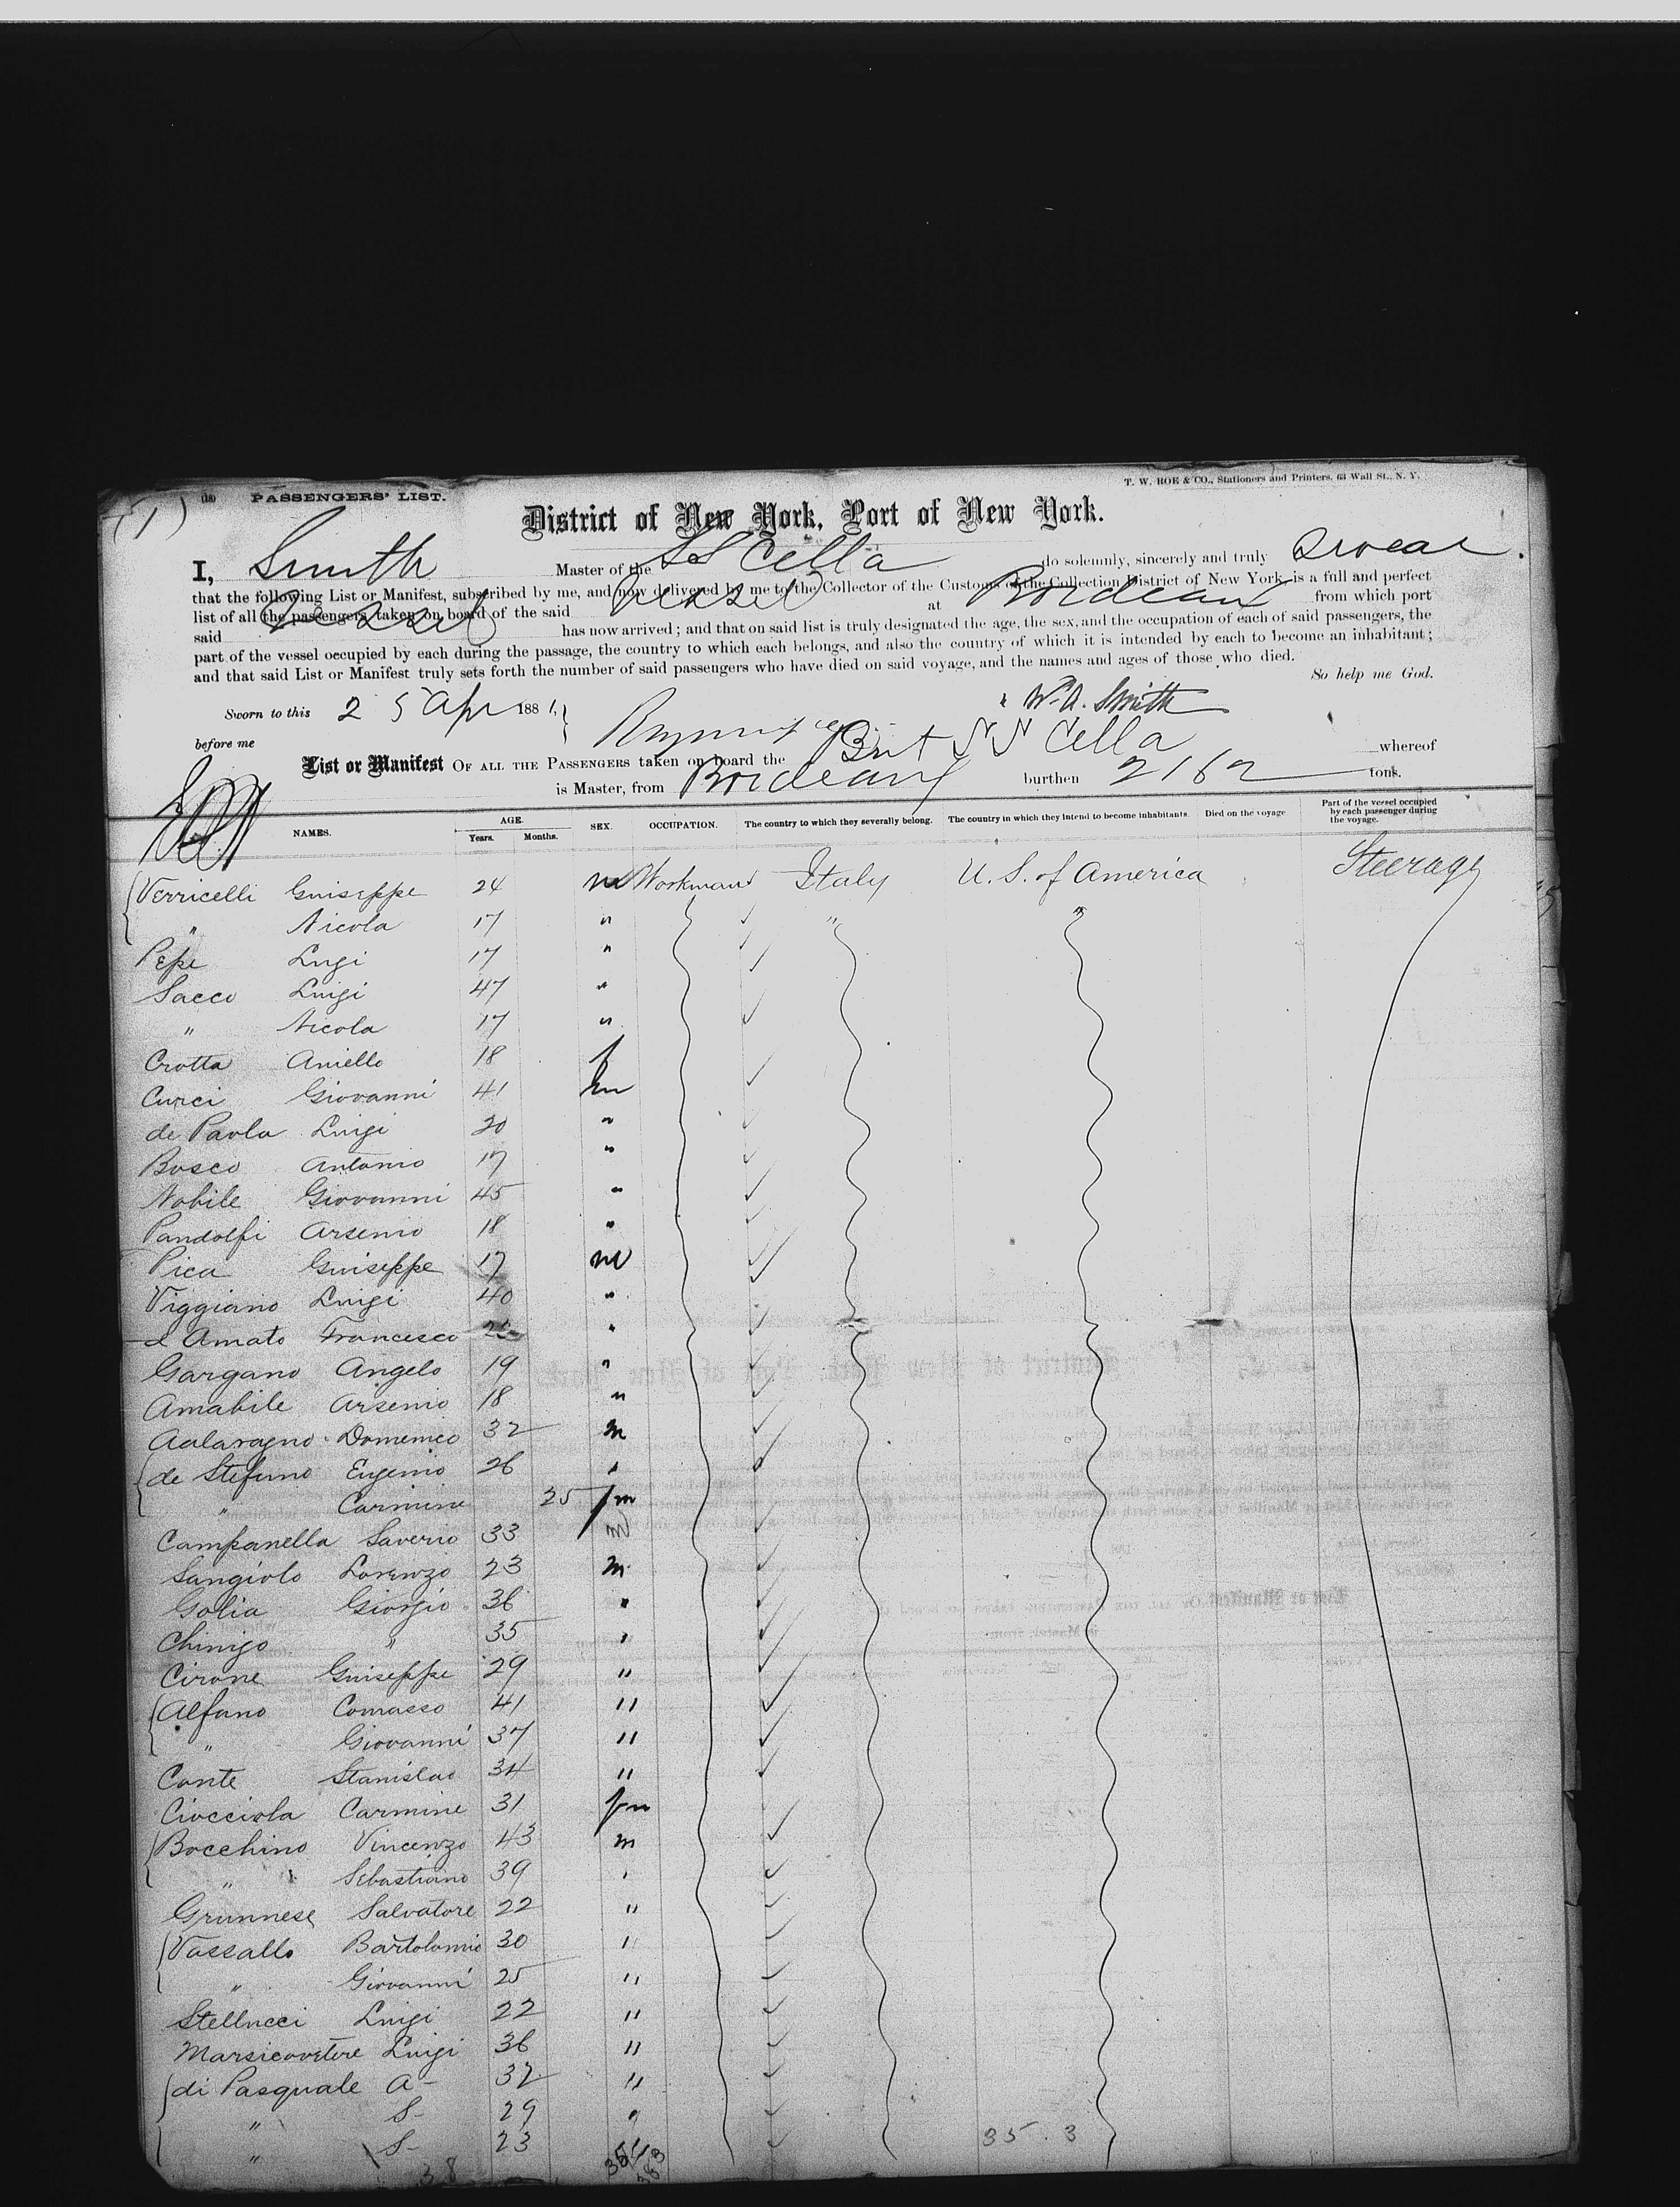 (1) (18) PASSENGERS' LIST. T. W. ROE & CO., Stationers and Printers, 63 Wall St., N. Y.
District of New York, Port of New York.
I, Smith Master of the SS Cella do solemnly, sincerely and truly Swear.
that the following List or Manifest, subscribed by me, and now delivered by me to the Collector of the Customs of the Collection District of New York is a full and perfect
list of all the passengers taken on board of the said Vessel at Bordeaux from which port
said Vessel has now arrived; and that on said list is truly designated the age, the sex, and the occupation of each of said passengers, the
part of the vessel occupied by each during the passage, the country to which each belongs, and also the country of which it is intended by each to become an inhabitant;
and that said List or Manifest truly sets forth the number of said passengers who have died on said voyage, and the names and ages of those who died.
So help me God.
Sworn to this 25 Apr 1881, W. A. Smith
before me
List or Manifest OF ALL THE PASSENGERS taken on board the Brit SS Cella whereof
is Master, from Bordeaux burthen 2162 tons.
NAMES. AGE. Years. Months. SEX. OCCUPATION. The country to which they severally belong. The country in which they intend to become inhabitants. Died on the voyage Part of the vessel occupied by each passenger during the voyage.
Verricelli Guiseppe 24 m Workman Italy U. S. of America Steerage
" Nicola 17 " " "
Pepe Lugi 17 "
Sacco Luigi 47 "
" Nicola 17 "
Crotta Aniello 18 f
Curci Giovanni 41 m
de Paola Luigi 20 "
Bosco Antonio 17 "
Nobile Giovanni 45 "
Pandolfi Arsenio 18 "
Pica Guiseppe 17 m
Viggiano Luigi 40 "
d Amato Francesco "
Gargano Angelo 19 "
Amabile Arsenio 18 "
Domenico 32 m
de Stefano Eugenio 26 "
" Carmine 25 m
Campanella Saverio 33 m
Sangiolo Lorenzo 23 m
Golia Giorgio 36 "
Chinigo " 35 "
Cirone Guiseppe 29 "
Alfano Comasso 41 "
" Giovanni 37 "
Conte Stanislao 34 "
Ciocciola Carmine 31 fm
Bocchino Vincenzo 43 m
" Sebastiano 39 "
Grunnese Salvatore 22 "
Vassallo Bartolomio 30 "
" Giovanni 25 "
Stellucci Luigi 22 "
Marsicovetere Luigi 36 "
di Pasquale A- 32 "
" S- 29 "
" S- 23 " 35.3
38